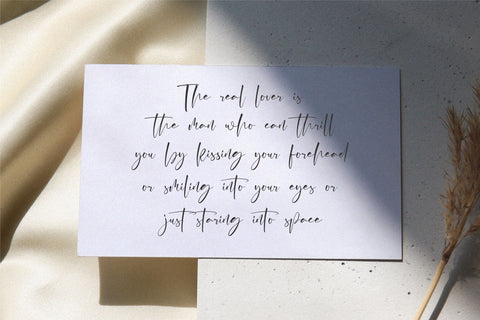 The real lover is
the man who can thrill
you by kissing your forehead
or smiling into your eyes or
just staring into space